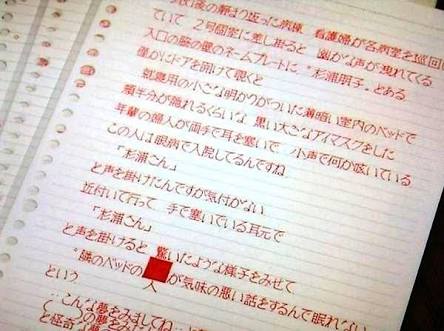 の静まり返った病棟　看護婦が各病室を巡回
ていて　2号個室に差し掛ると　幽かな声が洩れてくる
入口の脇の壁のネームプレートに "杉浦朋子" とある
僅かにドアを開けて覗くと
就寝用の小さな明かりがついた薄暗い室内のベッドで
顔半分が隠れるくらいな　黒い大きなアイマスクをした
年輩の婦人が両手で耳を塞いで　小声で何か呟いている
この人は眼病で入院してるんですね
「杉浦さん」
と声を掛けたんですが気付かない
近付いて行って　手で塞いでいる耳元で
「杉浦さん」
と声を掛けると　驚いたような様子をみせて
"隣のベッドの
人が気味の悪い話をするんで眠れない
という
こんな夢をみましてね
と怪奇な夢を